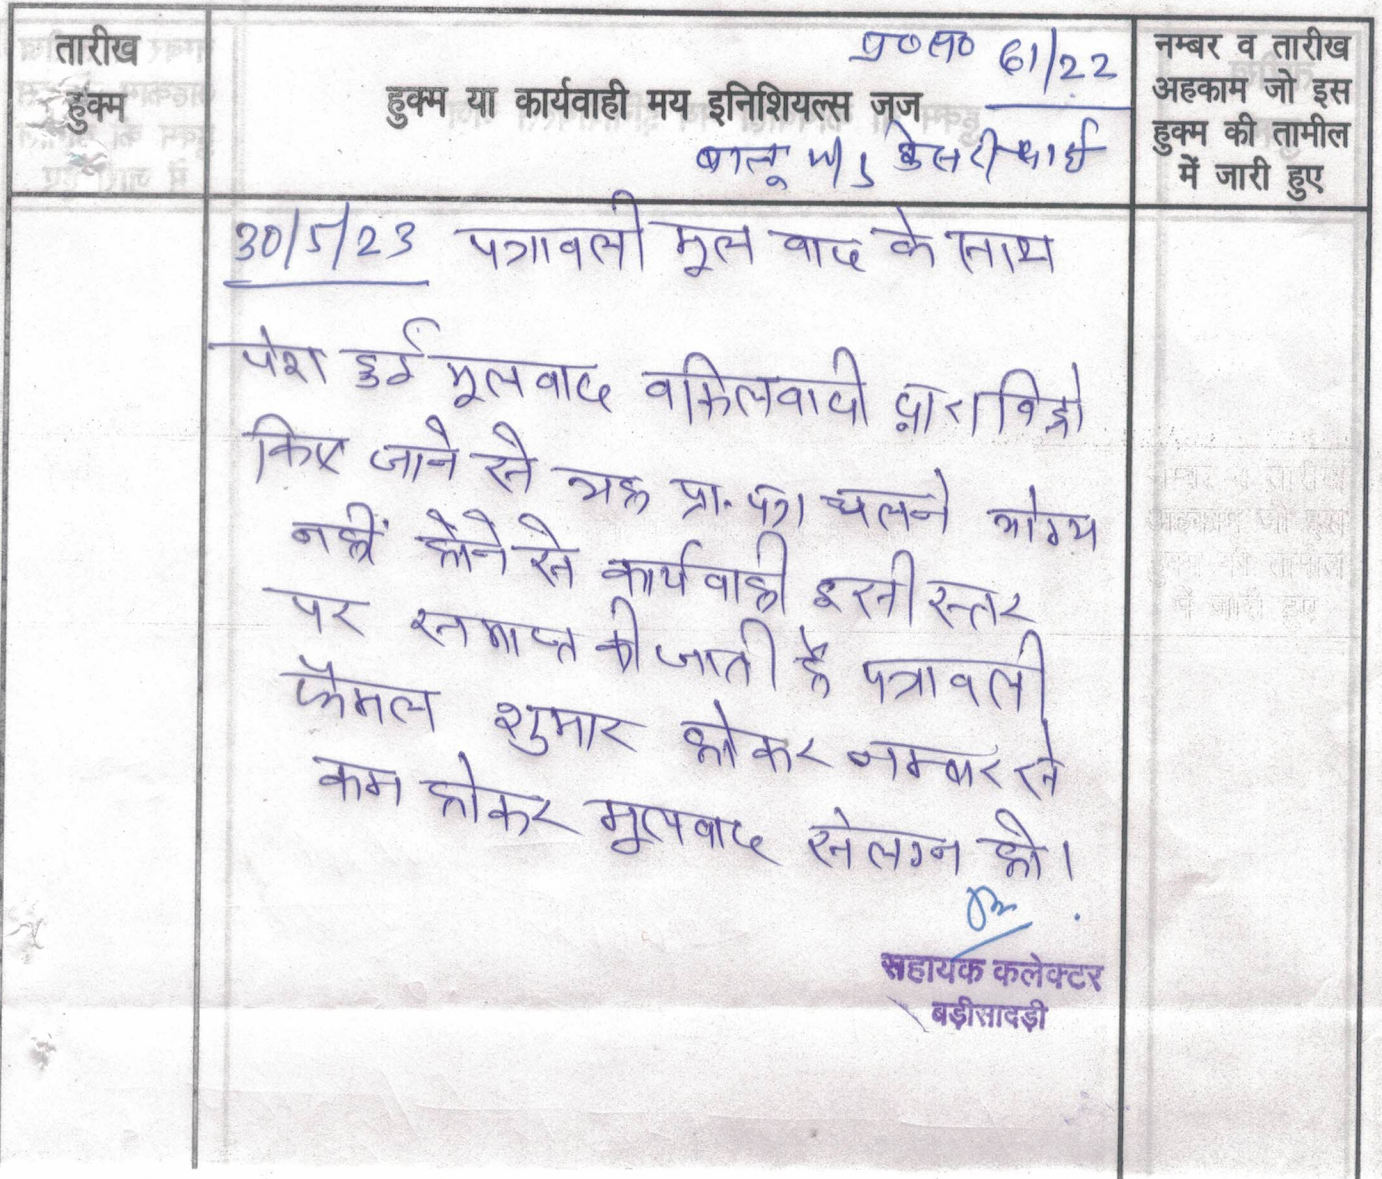 तारीख
हुक्म
हुक्म या कार्यवाही मय इनिशियल्स जज
प्र०स० 61/22
बालू v/s केसरीबाई
नम्बर व तारीख
अहकाम जो इस
हुक्म की तामील
में जारी हुए
30/5/23 पत्रावली मूल वाद के साथ
पेश हुई मूलवाद वकिलवादी द्वारा विड्रो
किए जाने से यह प्रा. पत्र चलने योग्य
नहीं होने से कार्यवाही इसी स्तर
पर समाप्त की जाती है पत्रावली
फैसल शुमार होकर नम्बर से
कम होकर मूलवाद संलग्न हो।
सहायक कलेक्टर
बड़ीसादड़ी